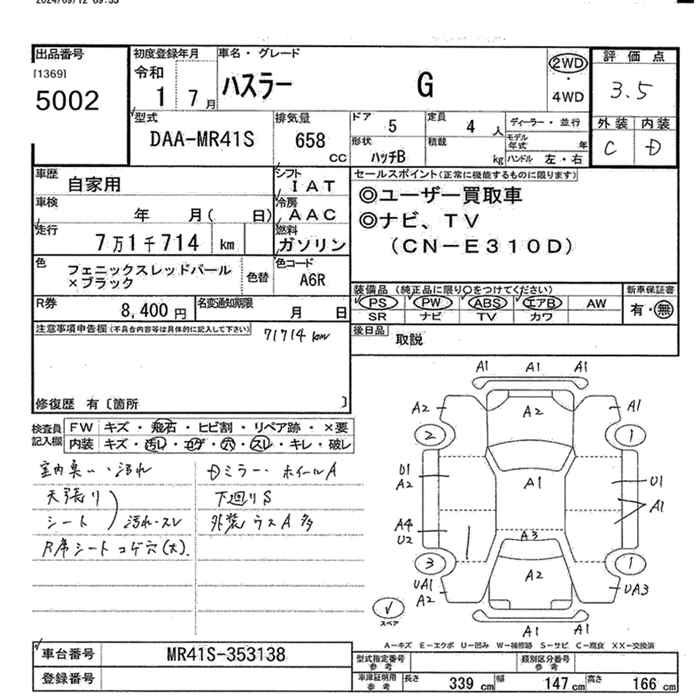 2024/09/12 09:55
出品番号
[1369]
5002
初度登録年月
令和
1 7月
車名・グレード
ハスラー G
2WD
・
4WD
評価点
3.5
外装 内装
C D
型式
DAA-MR41S
排気量
658
CC
ドア 5
定員 4 人
ディーラー・並行
形状
ハッチB
積載
kg
モデル年式 年
ハンドル 左・右
車歴
自家用
シフト
IAT
車検
年 月( 日)
冷房
AAC
走行
7万1千714 km
燃料
ガソリン
色
フェニックスレッドパール
×ブラック
色替
色コード
A6R
R券
8,400円
名変通知期限
月 日
セールスポイント(正常に機能するものに限ります)
◎ユーザー買取車
◎ナビ、TV
(CN-E310D)
装備品(純正品に限り○をつけてください)
新車保証書
PS PW ABS エアB AW
有・無
SR ナビ TV カワ
後日品
取説
注意事項申告欄(不具合内容等は具体的に記入して下さい)
71714km
修復歴 有〔箇所 〕
検査員
記入欄
FW キズ・飛石・ヒビ割・リペア跡・×要
内装 キズ・汚れ・コゲ・穴・スレ・キレ・破レ
室内臭い・汚れ
天張り
シート
汚れ・スレ
R席シートコゲ穴(大)
Dミラー・ホイールA
下廻りS
外装ウスA多
A1 A1 A1
A2 A2 A1
2 1
U1
A2
A1
U1
A1
A4
U2
A3
3 1
UA1
A2
A2
UA3
A1 A1
スペア
A-キズ E-エクボ U-凹み W-補修跡 S-サビ C-腐食 XX-交換済
車台番号
MR41S-353138
登録番号
型式指定番号
参考
類別区分番号
参考
車庫証明用
参考
長さ 339 cm 幅 147 cm 高さ 166 cm